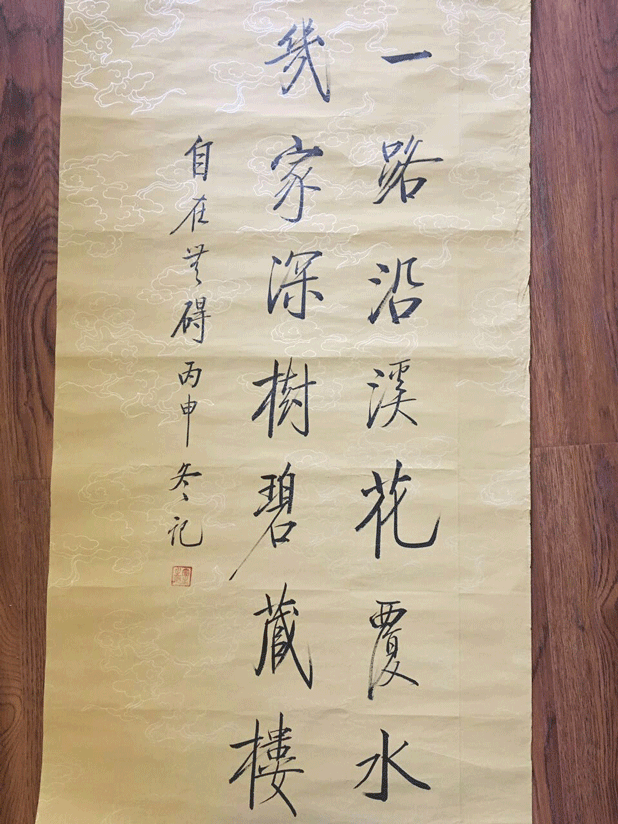 一路沿溪花覆水
幾家深樹碧藏樓
自在无碍丙申冬记